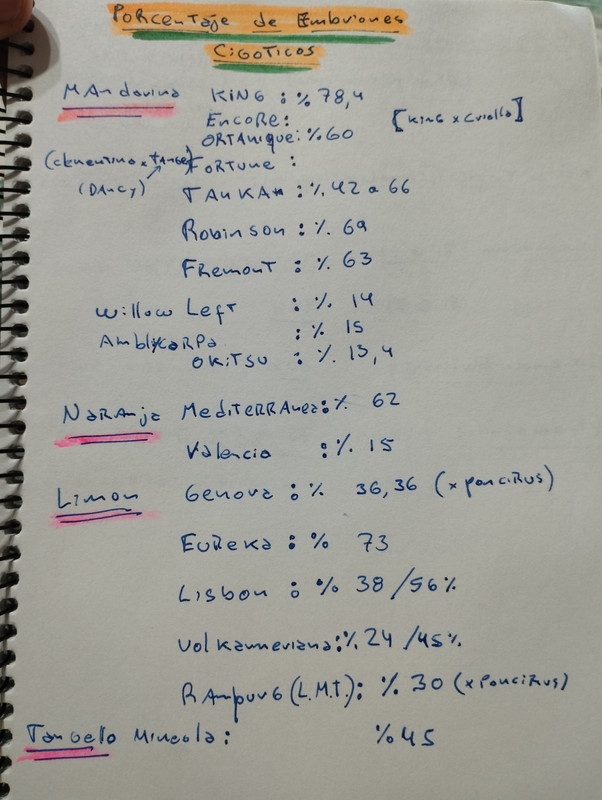 Porcentaje de Embriones
Cigoticos
Mandarina King : % 78,4
Encore: [King x Criolla]
Ortanique: % 60
(Clementina x Tange) Fortune :
(Dancy) Tankan : % 42 a 66
Robinson : % 69
Fremont : % 63
Willow Left : % 14
Amblycarpa : % 15
Okitsu : % 13,4
Naranja Mediterranea: % 62
Valencia : % 15
Limon Genova : % 36,36 (x poncirus)
Eureka : % 73
Lisbon : % 38 /56%
Volkameriana: % 24 /45%
Rampur6 (L.M.T.): % 30 (x Poncirus)
Tangelo Mineola : % 45